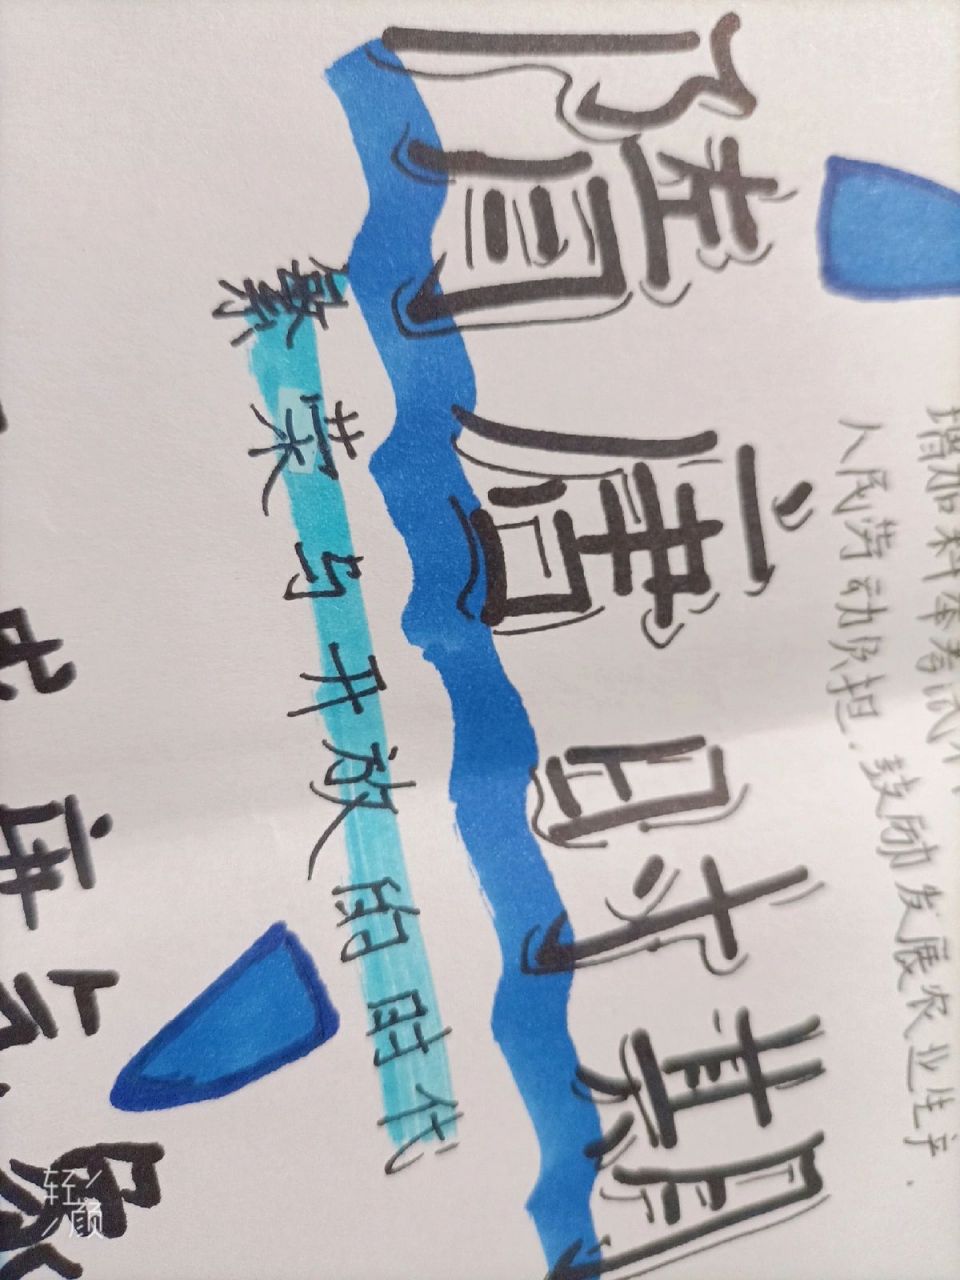 增加科举考试
人民劳动负担．鼓励发展农业生产．
隋唐时期
繁荣与开放的时代
轻颜